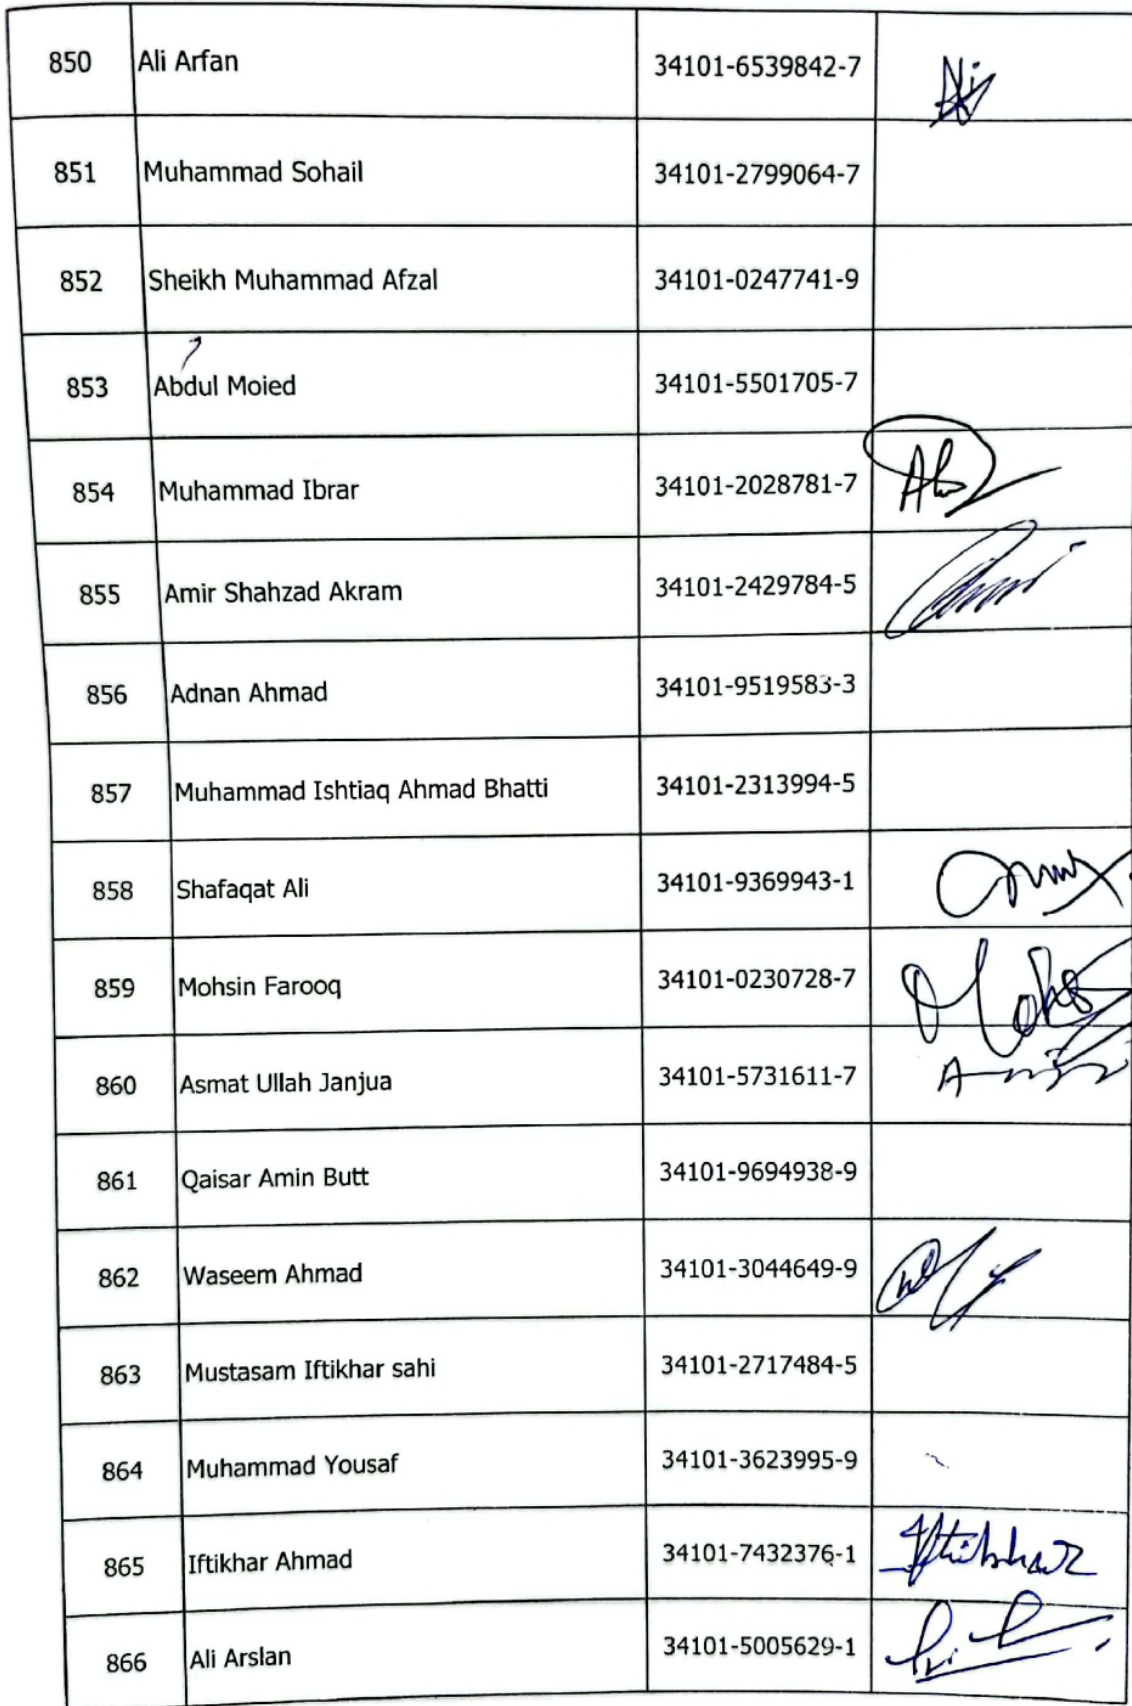 850 Ali Arfan 34101-6539842-7 Ali
851 Muhammad Sohail 34101-2799064-7
852 Sheikh Muhammad Afzal 34101-0247741-9
853 Abdul Moied 34101-5501705-7
854 Muhammad Ibrar 34101-2028781-7
855 Amir Shahzad Akram 34101-2429784-5
856 Adnan Ahmad 34101-9519583-3
857 Muhammad Ishtiaq Ahmad Bhatti 34101-2313994-5
858 Shafaqat Ali 34101-9369943-1
859 Mohsin Farooq 34101-0230728-7
860 Asmat Ullah Janjua 34101-5731611-7
861 Qaisar Amin Butt 34101-9694938-9
862 Waseem Ahmad 34101-3044649-9
863 Mustasam Iftikhar sahi 34101-2717484-5
864 Muhammad Yousaf 34101-3623995-9
865 Iftikhar Ahmad 34101-7432376-1 Iftikhar
866 Ali Arslan 34101-5005629-1